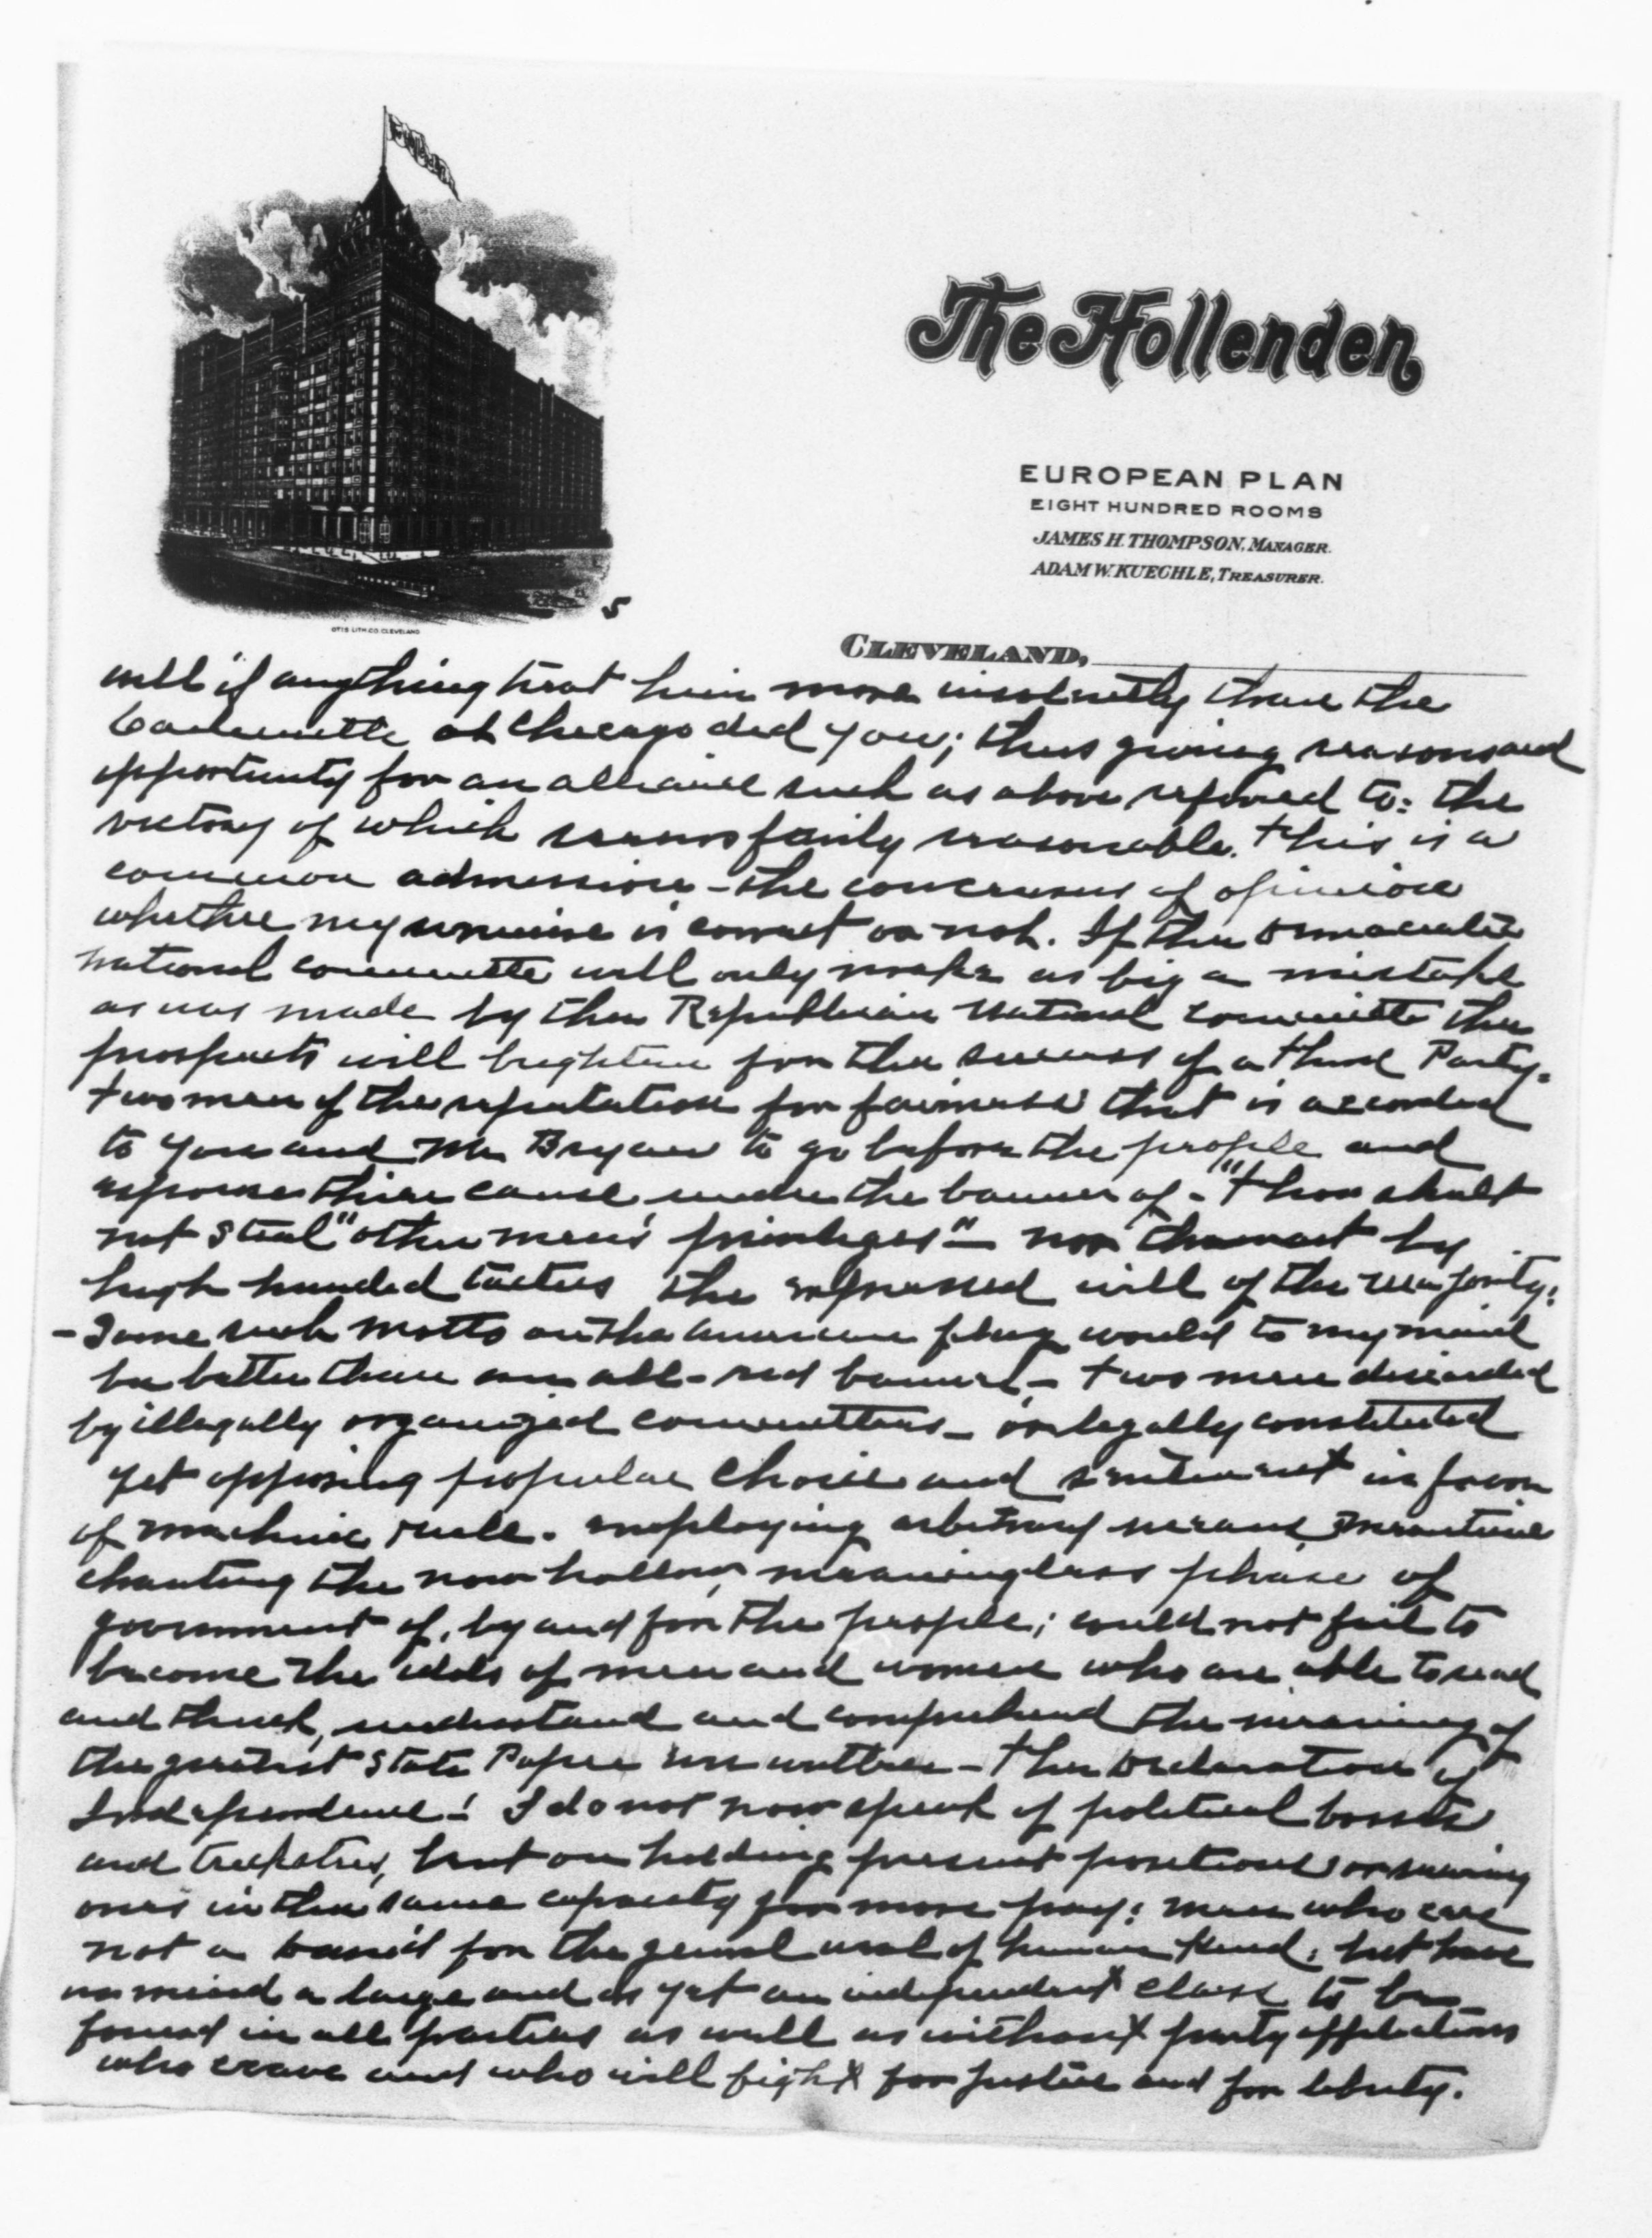 The Hollenden
EUROPEAN PLAN
EIGHT HUNDRED ROOMS
JAMES H. THOMPSON, MANAGER.
ADAM W. KUECHLE, TREASURER.
5
OTIS LITH. CO. CLEVELAND
CLEVELAND,
will if anything treat him more insolently than the
Committe at Chicago did you; thus giving reasons and
opportunity for an alliance such as above refered to: the
victory of which seems fairly reasonable. This is a
common admission - the concensus of opinion
whether my surmise is correct or not. If the Democratic
National committe will only make as big a mistake
as was made by the Republican National Committe the
prospects will brighten for the success of a third Party.
two men of the reputation for fairness that is accorded
to you and Mr. Bryan to go before the people and
espouse thier cause under the banner of - "thou shalt
not steal" other men's priveleges" - nor thwart by
high handed tactics the expressed will of the majority:
- Some such motto on the American flag would to my mind
be better than an all-red banner - two men discarded
by illegally organized committees - or legally constituted
yet opposing popular choice and sentiment in favor
of machine rule. employing arbitrary means meantime
chanting the now hollow, meaningless phase of
government of, by and for the people; could not fail to
become the idols of men and women who are able to read
and think, understand and comprehend the meaning of
the greatest State Paper ever written - the Declaration of
Independence! I do not now speak of political bosses
and tricksters, bent on holding present positions or
ones in the same capacity for more pay: men who care
not a for the general weal of human kind; but have
in mind a large and as yet an independent class to be
found in all parties as well as without party affiliations
who crave and who will fight for justice and for liberty.